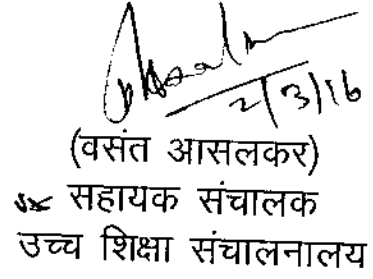 2/3/16
(वसंत आसलकर)
सहायक संचालक
उच्च शिक्षा संचालनालय